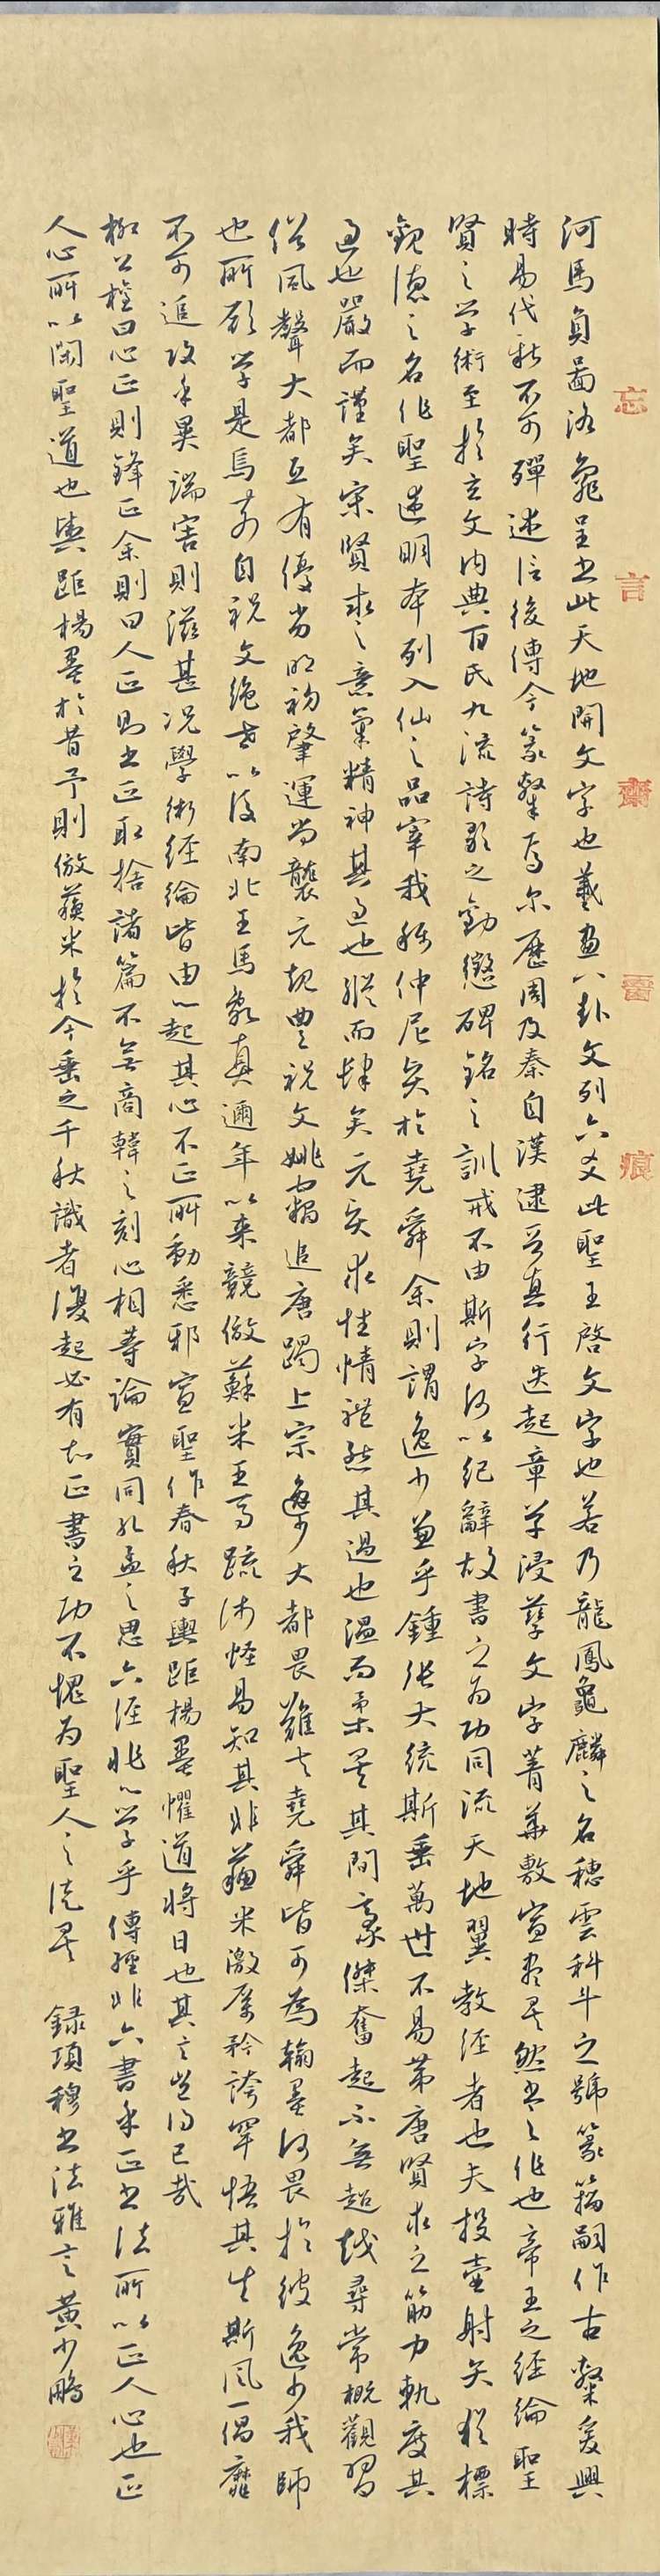 忘言齋墨痕
河馬負圖洛龜呈書此天地開文字也羲畫八卦文列六爻此聖王啓文字也若乃龍鳳龜麟之名穗雲科斗之號篆籀嗣作古隸爰興
時易代新不可殫述信後傳今篆隸焉爾歷周及秦自漢逮晉真行迭起章草浸孳文字菁華敷宣盡矣然書之作也帝王之經綸聖
賢之學術至於玄文內典百氏九流詩歌之勸懲碑銘之訓戒不由斯字何以紀辭故書之為功同流天地翼教經者也夫投壺射矢猶標
觀德之名作聖述明本列入仙之品宰我稱仲尼賢於堯舜余則謂逸少兼乎鍾張大統斯垂萬世不易第唐賢求之筋力軌度其
過也嚴而謹矣宋賢求之意氣精神其過也縱而肆矣元賢求性情體態其過也溫而柔矣其間豪傑奮起不無超越尋常概觀習
俗風聲大都互有優劣明初肇運尚襲元規豐祝文姚竊追唐躅上宗逸少大都畏難夫堯舜皆可為翰墨何畏於彼逸少我師
也所願學是焉奈自祝文絕世以後南北王馬亂真邇年以來競倣蘇米王馬疏淺怪易知其非蘇米激厲矜誇罕悟其失斯風一倡靡
不可追攻乎異端害則滋甚況學術經綸皆由心起其心不正所動悉邪宣聖作春秋子輿距楊墨懼道將日也其言豈得已哉
柳公權曰心正則鋒正余則曰人正則書正取捨諸篇不無商韓之刻心相等論實同孔孟之思六經非心學乎傳經非六書乎正書法所以正人心也正
人心所以閑聖道也輿距楊墨於昔予則倣蘇米於今垂之千秋識者復起必有知正書之功不愧為聖人之徒矣 錄項穆書法雅言 黃少鵬